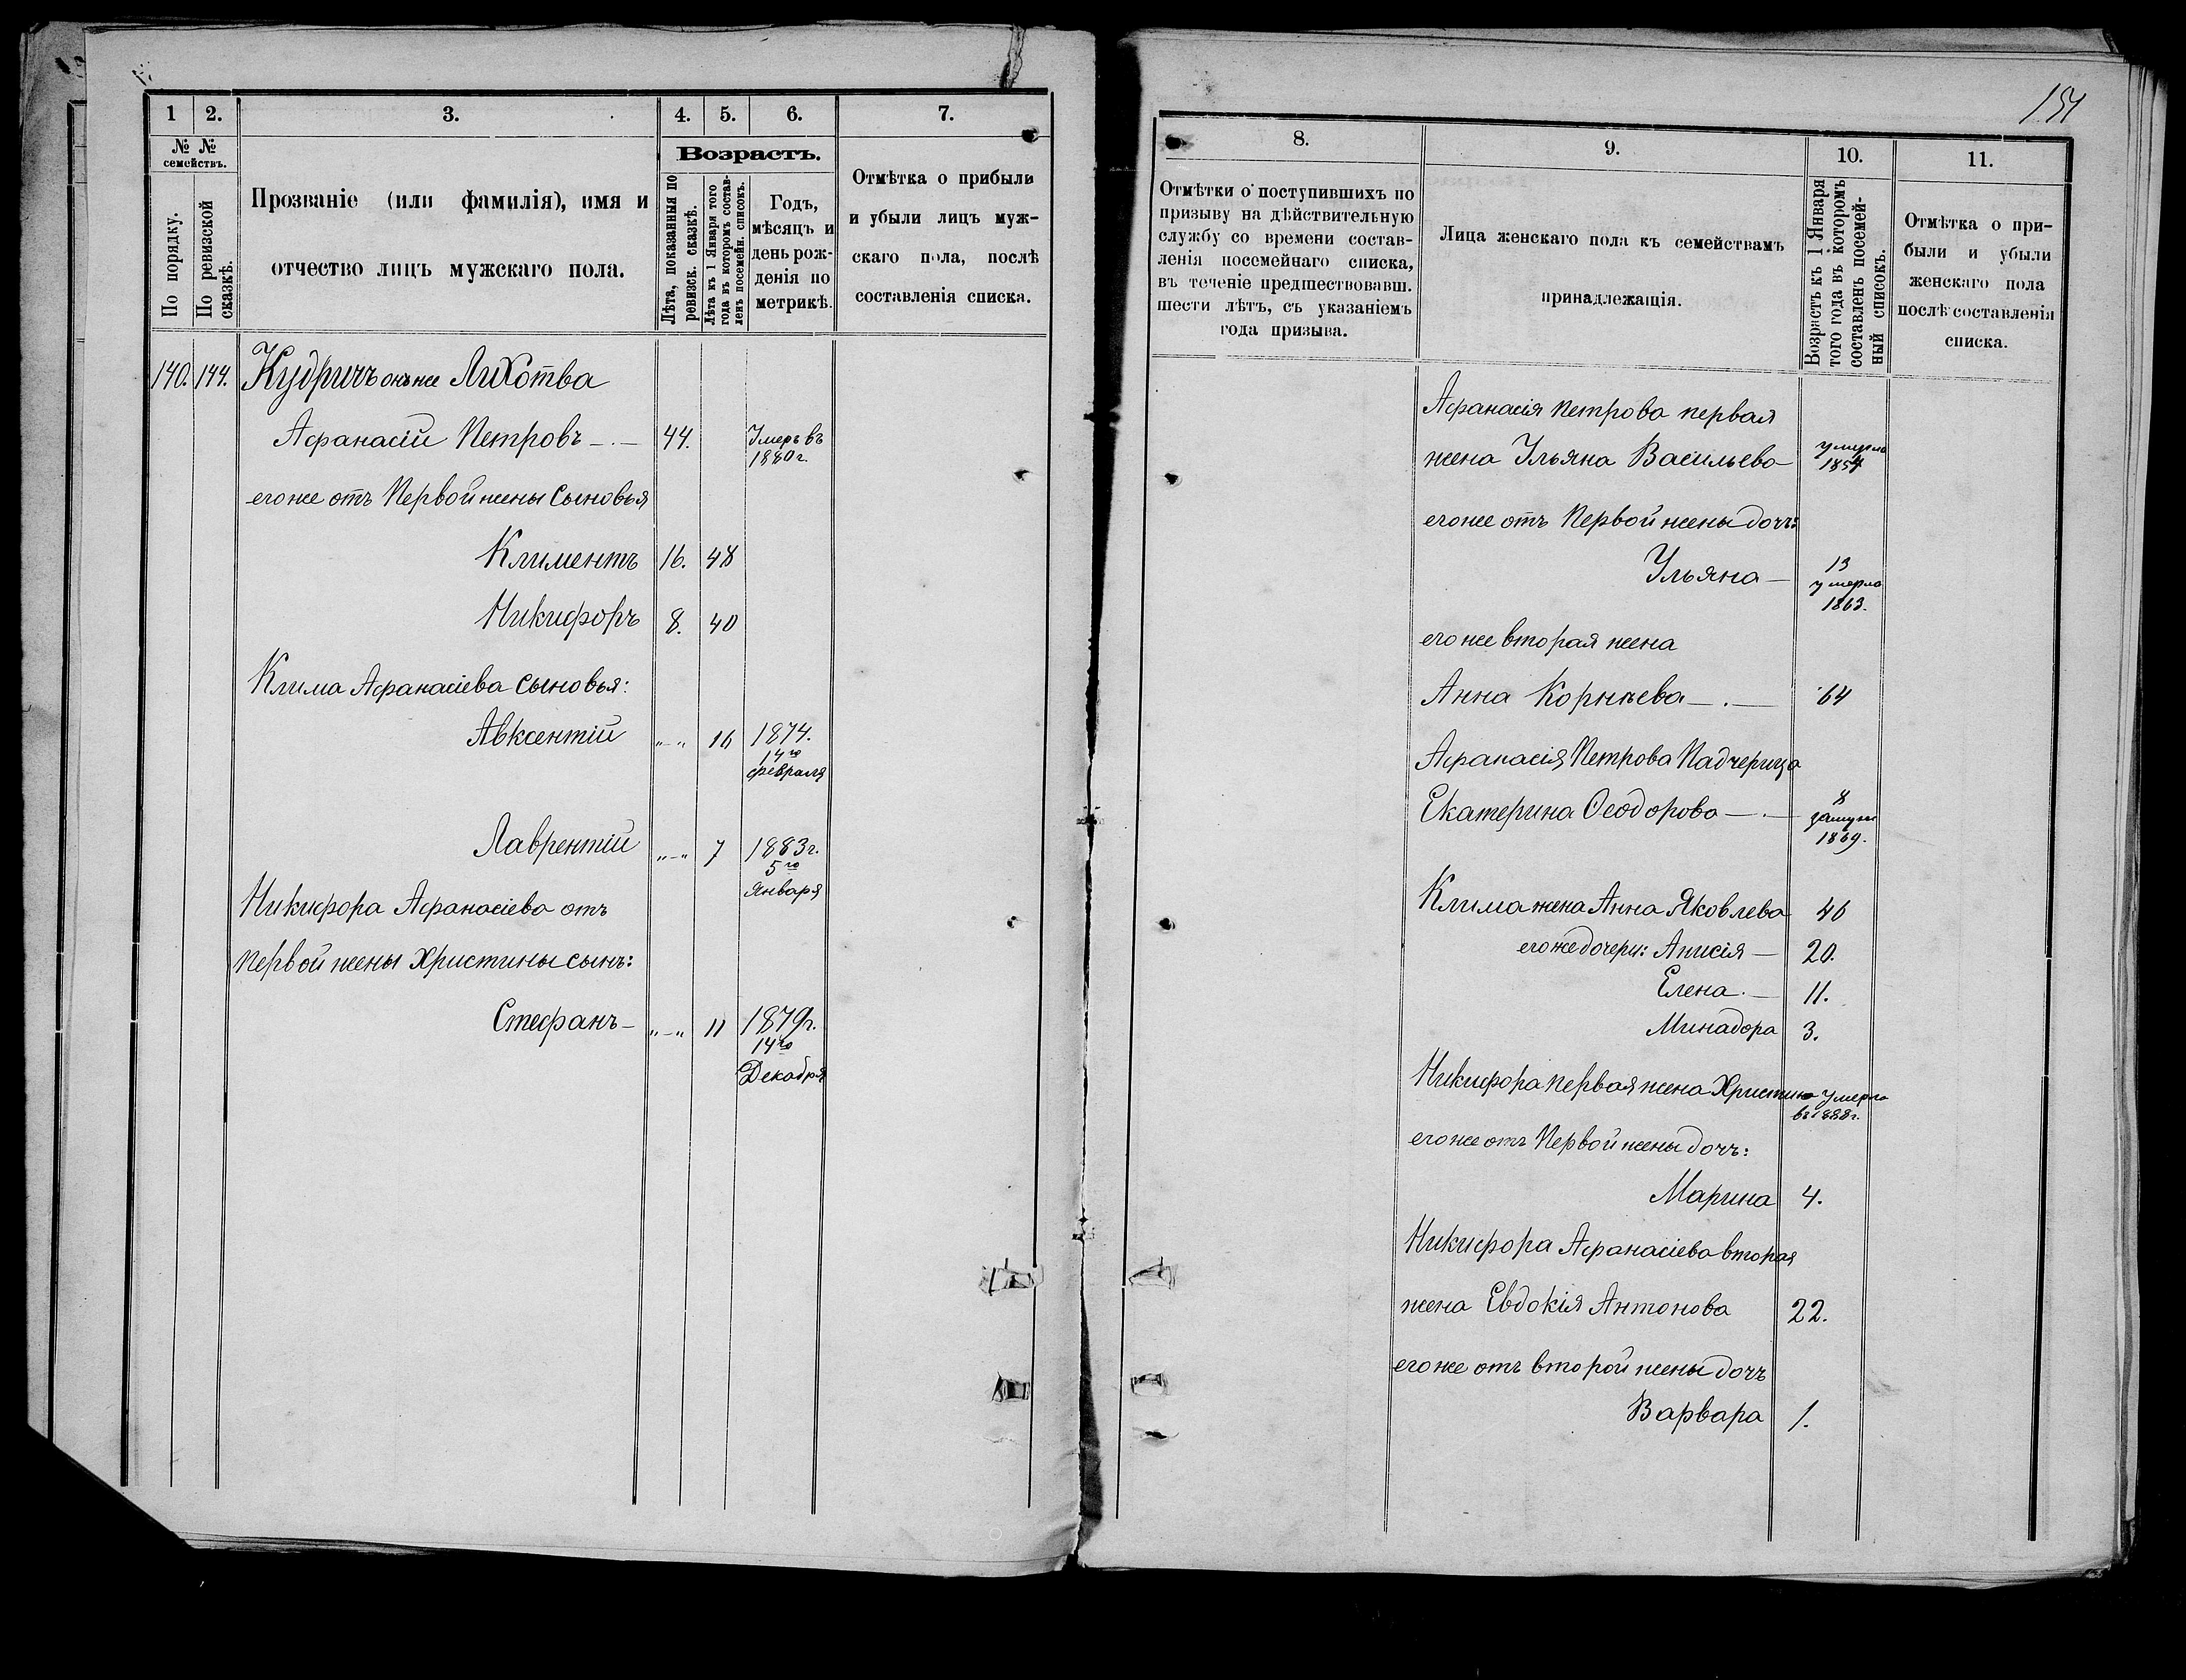 154
1 2. 3. 4. 5. 6. 7.
№ № семействъ.
По порядку.
По ревизской сказкѣ.
Прозваніе (или фамилія), имя и
отчество лицъ мужскаго пола.
Возрастъ.
Лѣта, показанныя по ревизск. сказкѣ.
Лѣта къ 1 Января того года въ которомъ составленъ посемейн. списокъ.
Годъ,
мѣсяцъ и
день рож-
денія по
метрикѣ.
Отмѣтка о прибыли
и убыли лицъ муж-
скаго пола, послѣ
составленія списка.
140. 144. Кудричъ онъ же Лихотва
Афанасій Петровъ — 44. Умеръ въ
1880 г.
его же отъ Первой жены Сыновья
Климентъ 16. 48
Никифоръ 8. 40
Клима Афанасіева Сыновья:
Авксентій "—" 16 1874.
14го
февраля
Лаврентій "—" 7 1883 г.
5го
Января
Никифора Афанасіева отъ
первой жены Христины сынъ:
Стефанъ — "—" 11 1879 г.
14го
Декабря
8. 9. 10. 11.
Отмѣтки о поступившихъ по
призыву на дѣйствительную
службу со времени состав-
ленія посемейнаго списка,
въ теченіе предшествовавш.
шести лѣтъ, съ указаніемъ
года призыва.
Лица женскаго пола къ семействамъ
принадлежащія.
Возрастъ къ 1 Января
того года въ которомъ
составленъ посемей-
ный списокъ.
Отмѣтка о при-
были и убыли
женскаго пола
послѣ составленія
списка.
Афанасія Петрова первая
жена Ульяна Васильева умерла
1854
его же отъ Первой жены дочь:
Ульяна — 13
умерла
1863.
его же вторая жена
Анна Корнѣева — 64
Афанасія Петрова Падчерица
Екатерина Ѳеодорова — 8
замуж
1869.
Клима жена Анна Яковлева 46
его же дочери: Анисія — 20.
Елена — 11.
Минадора 3.
Никифора первая жена Христина умерла
въ 1888 г.
его же отъ Первой жены дочь:
Марина 4.
Никифора Афанасіева вторая
жена Евдокія Антонова 22.
его же отъ второй жены дочь
Варвара 1.